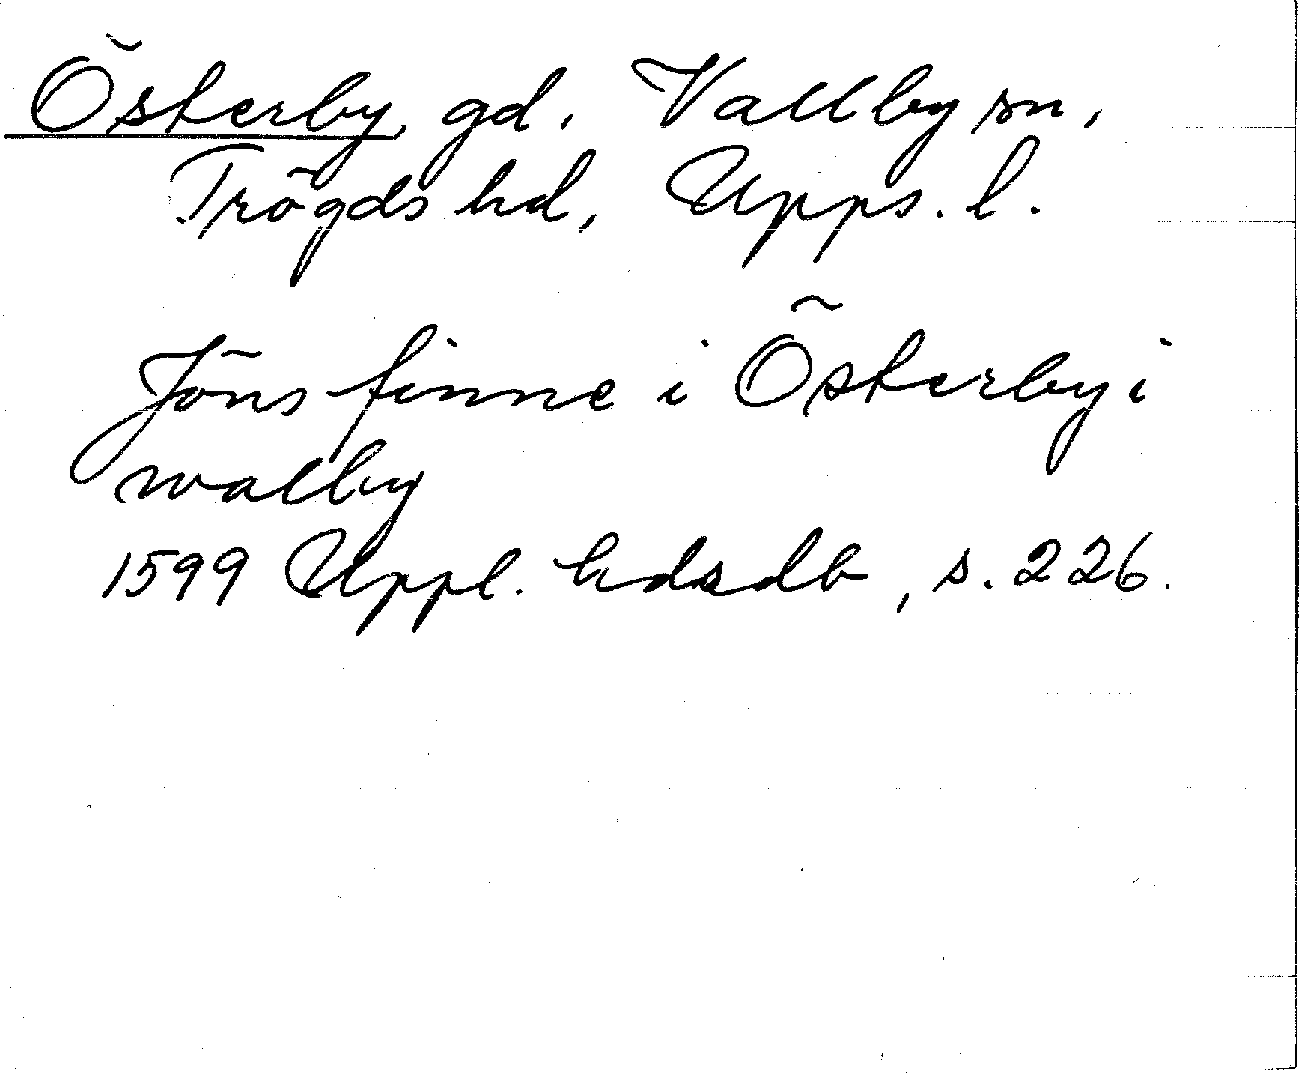 Österby, gd. Vallby sn,
Trögds hd, Upps. l.
Jöns finne i Österby i
walby
1599 Uppl. hdsdb, s. 226.